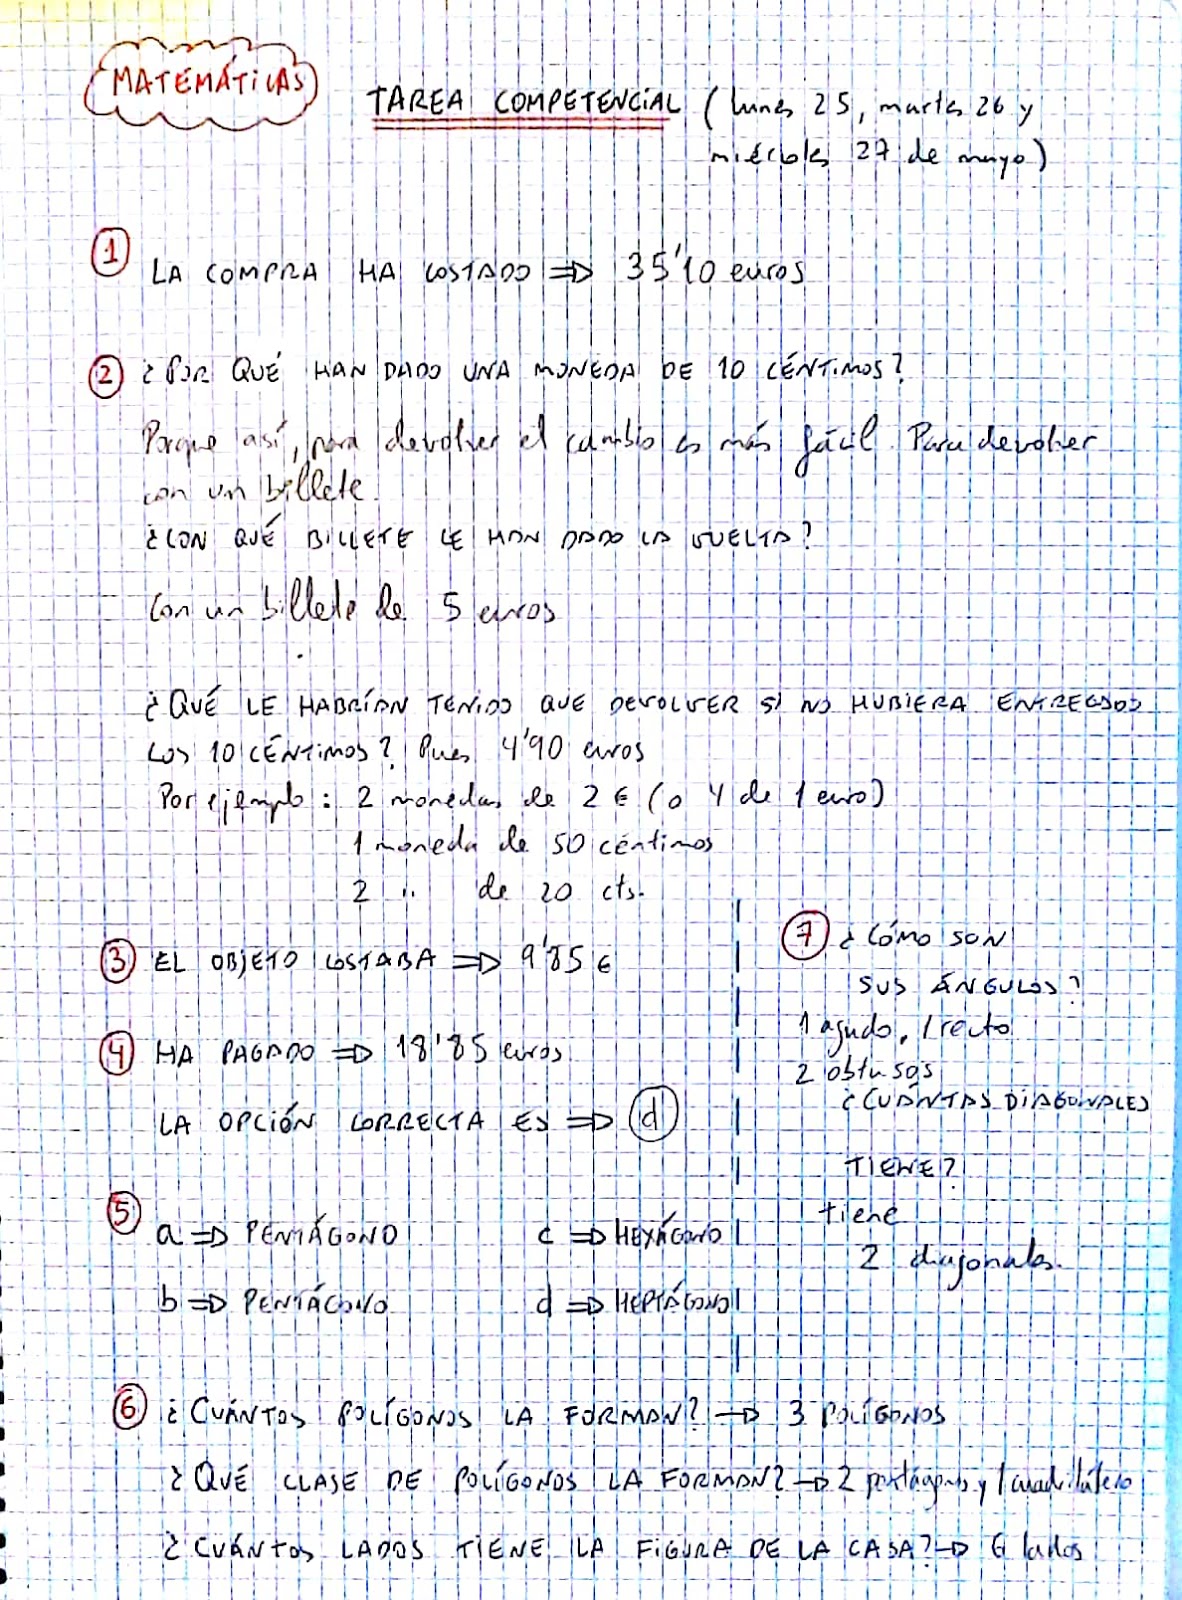 MATEMÁTICAS
TAREA COMPETENCIAL (lunes 25, martes 26 y
miércoles 27 de mayo)
1 LA COMPRA HA COSTADO ⇒ 35'10 euros
2 ¿POR QUÉ HAN DADO UNA MONEDA DE 10 CÉNTIMOS?
Porque así, para devolver el cambio es más fácil. Para devolver
con un billete.
¿CON QUÉ BILLETE LE HAN DADO LA VUELTA?
Con un billete de 5 euros
¿QUÉ LE HABRÍAN TENIDO QUE DEVOLVER SI NO HUBIERA ENTREGADO
LOS 10 CÉNTIMOS? Pues 4'90 euros
Por ejemplo: 2 monedas de 2 € (o 4 de 1 euro)
1 moneda de 50 céntimos
2 " de 20 cts.
3 EL OBJETO COSTABA ⇒ 9'85 €
4 HA PAGADO ⇒ 18'85 euros
LA OPCIÓN CORRECTA ES ⇒ d
5 a ⇒ PENTÁGONO c ⇒ HEXÁGONO
b ⇒ PENTÁGONO d ⇒ HEPTÁGONO
7 ¿CÓMO SON
SUS ÁNGULOS?
1 agudo, 1 recto
2 obtusos
¿CUÁNTAS DIAGONALES
TIENE?
tiene
2 diagonales.
6 ¿CUÁNTOS POLÍGONOS LA FORMAN? → 3 POLÍGONOS
¿QUÉ CLASE DE POLÍGONOS LA FORMAN? → 2 pentágonos y 1 cuadrilátero
¿CUÁNTOS LADOS TIENE LA FIGURA DE LA CASA? → 6 lados